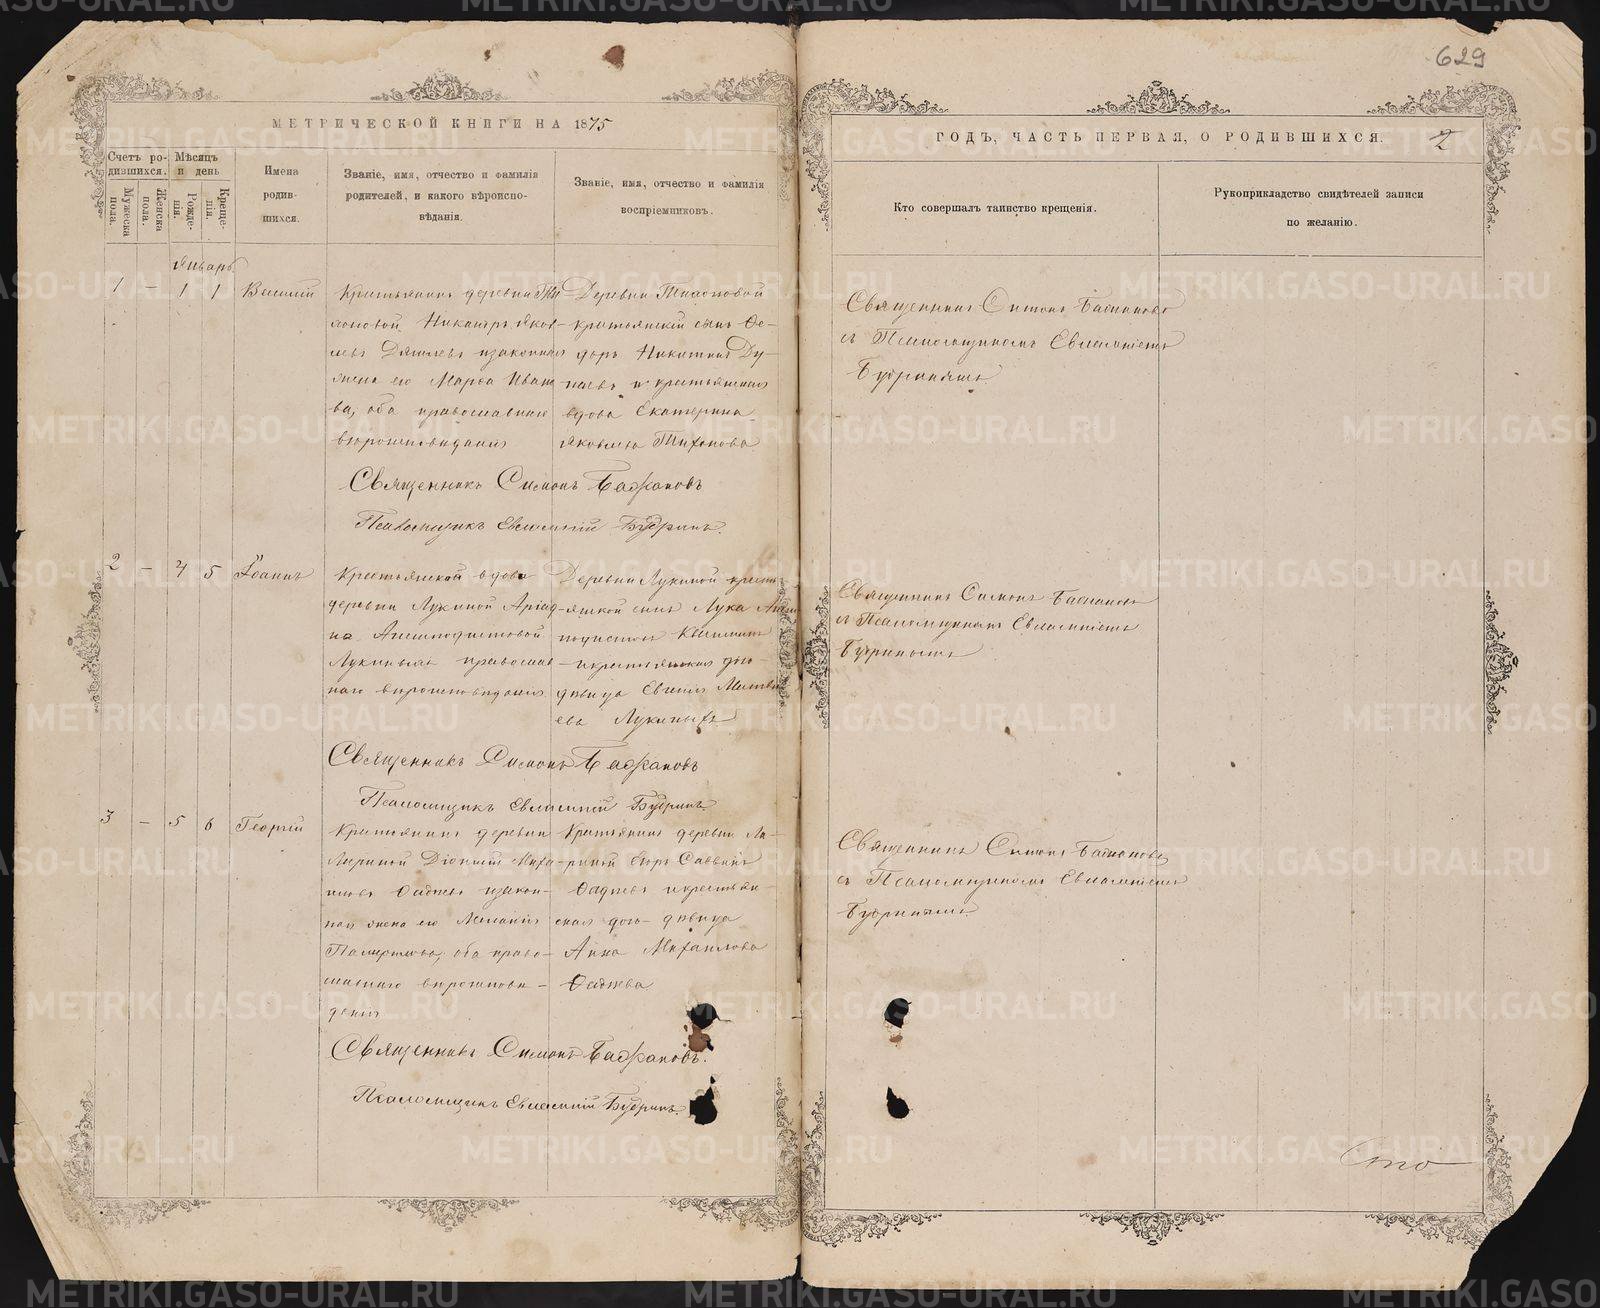 629
МЕТРИЧЕСКОЙ КНИГИ НА 1875
ГОДЪ, ЧАСТЬ ПЕРВАЯ, О РОДИВШИХСЯ.
2
Счетъ ро-
дившихся.
Мужеска
пола.
Женска
пола.
Мѣсяцъ
и день
Рожде-
нія.
Креще-
нія.
Имена
родив-
шихся.
Званіе, имя, отчество и фамилія
родителей, и какого вѣроиспо-
вѣданія.
Званіе, имя, отчество и фамилія
воспріемниковъ.
Кто совершалъ таинство крещенія.
Рукоприкладство свидѣтелей записи
по желанію.
Январь
1 – 1 1 Василій
Крестьянинъ деревни
Никаноръ Яков-
левъ изаконная
жена его Марѳа Иван
ва, оба православнаго
вѣроисповѣданія
Деревни
крестьянскій сынъ Ѳе-
доръ Никитинъ
и крестьянская
вдова Екатерина
Яковлева Тихонова
Священникъ Симонъ Бажановъ
съ Псаломщикомъ Евлампіемъ
Будринымъ
Священникъ Симонъ Бажановъ
Псаломщикъ Евлампій Будринъ.
2 – 4 5 Іоаннъ
Крестьянская вдова
деревни Лукиной Аріад-
на
Лукиныхъ православ
наго вѣроисповѣданія
Деревни Лукиной крест
янской сынъ Лука
и крестьянская дочь
дѣвица Евгенія Матвѣ
ева Лукиныхъ
Священникъ Симонъ Бажановъ
съ Псаломщикомъ Евлампіемъ
Будринымъ
Священникъ Симонъ Бажановъ
Псаломщикъ Евлампій Будринъ.
3 – 5 6 Георгій
Крестьянинъ деревни
Діонисій Миха-
иловъ изакон-
ная жена его Меланія
оба право-
славнаго вѣроисповѣ-
данія
Крестьянинъ деревни Ла-
риной
и крестьян-
ская дочь дѣвица
Анна Михаилова
Священникъ Симонъ Бажановъ
съ Псаломщикомъ Евлампіемъ
Будринымъ
Священникъ Симонъ Бажановъ.
Псаломщикъ Евлампій Будринъ.
METRIKI.GASO-URAL.RU